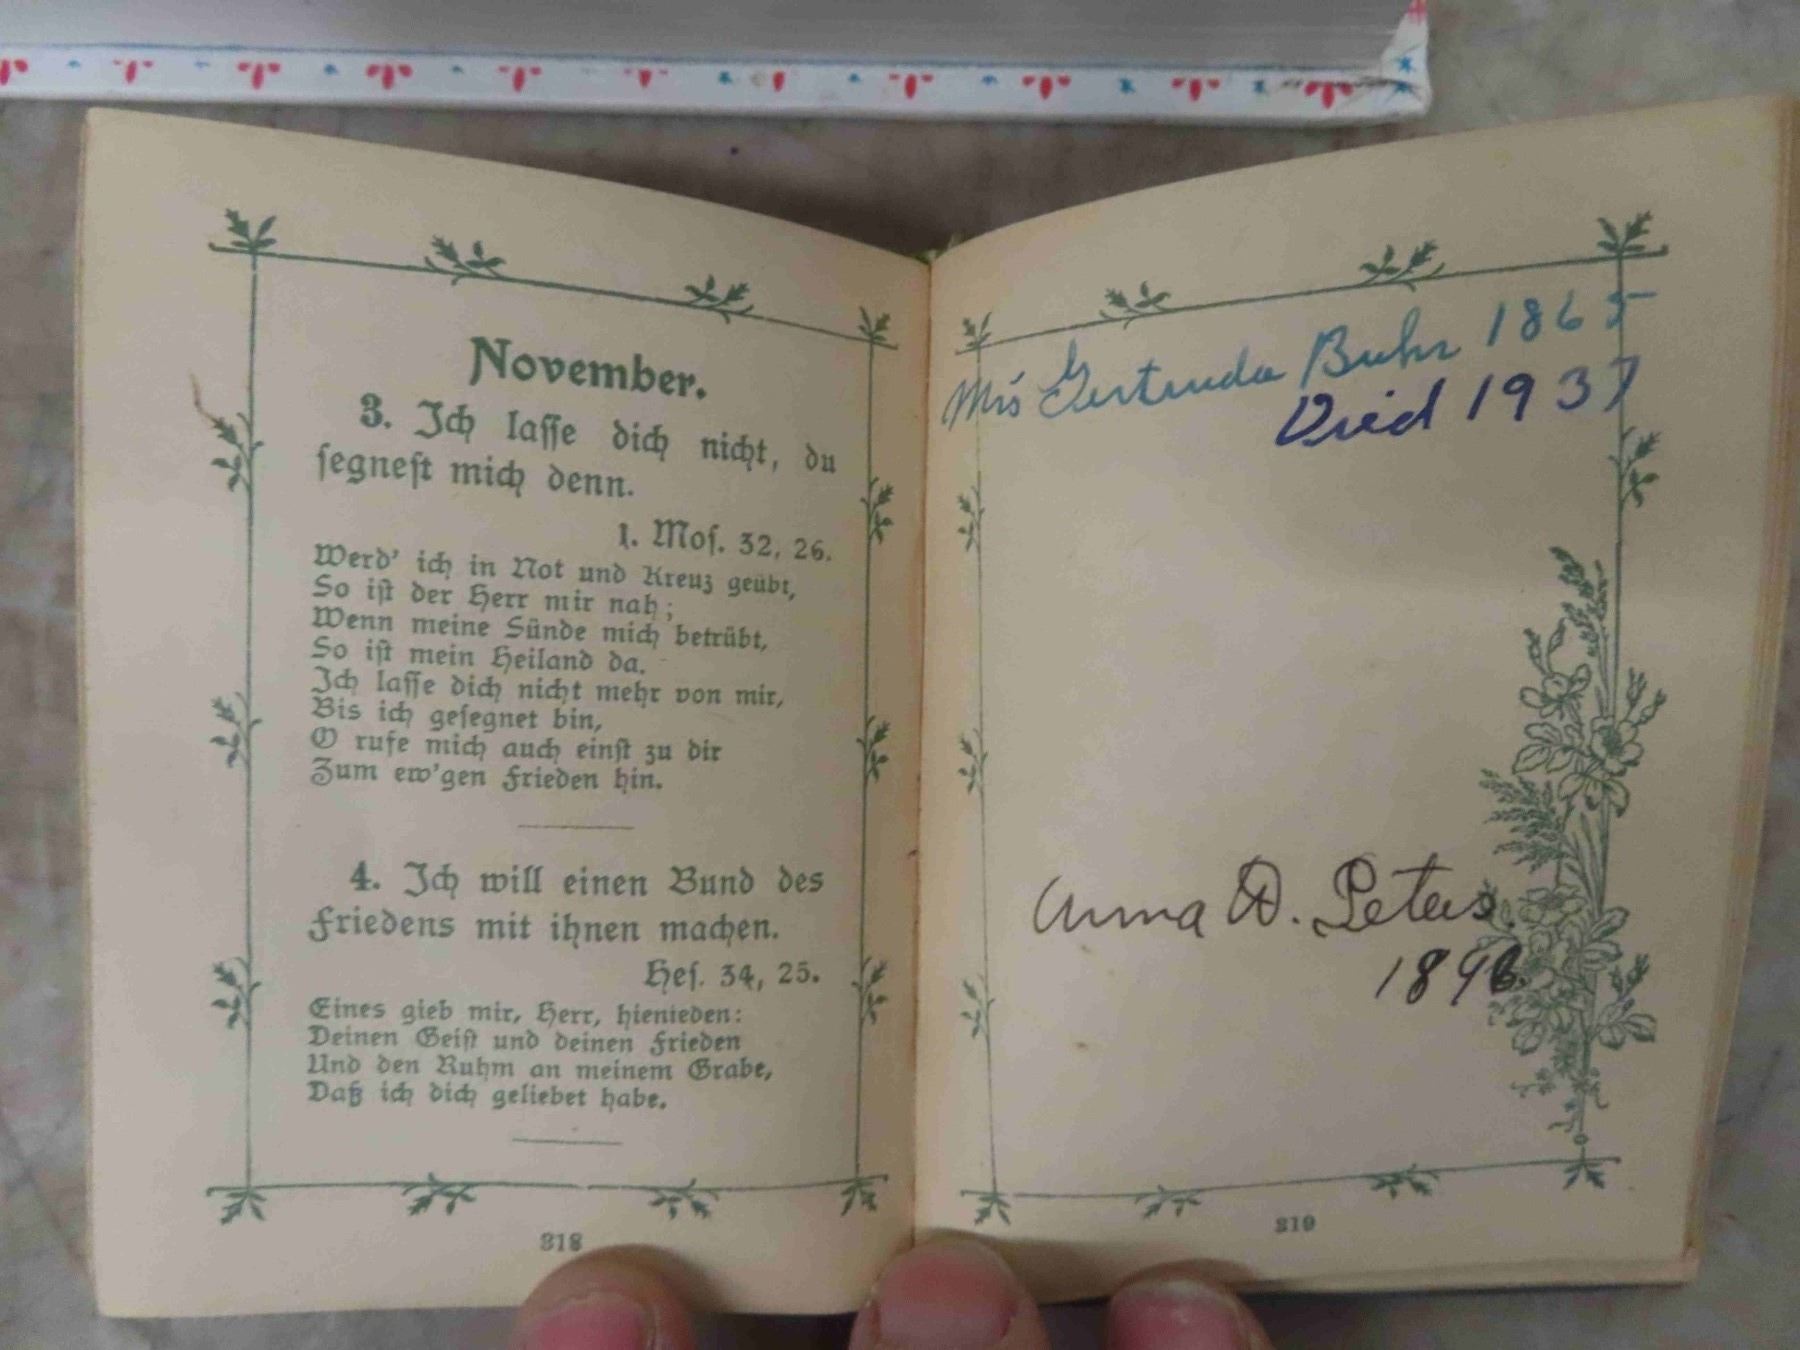 November.
3. Ich lasse dich nicht, du
segnest mich denn.
1. Mos. 32, 26.
Werd' ich in Not und Kreuz geübt,
So ist der Herr mir nah;
Wenn meine Sünde mich betrübt,
So ist mein Heiland da.
Ich lasse dich nicht mehr von mir,
Bis ich gesegnet bin,
O rufe mich auch einst zu dir
Zum ew'gen Frieden hin.
4. Ich will einen Bund des
Friedens mit ihnen machen.
Hes. 34, 25.
Eines gieb mir, Herr, hienieden:
Deinen Geist und deinen Frieden
Und den Ruhm an meinem Grabe,
Daß ich dich geliebet habe.
318
Mrs Gertruda Buhr 1865
Died 1937
Anna D. Peters
1896.
319